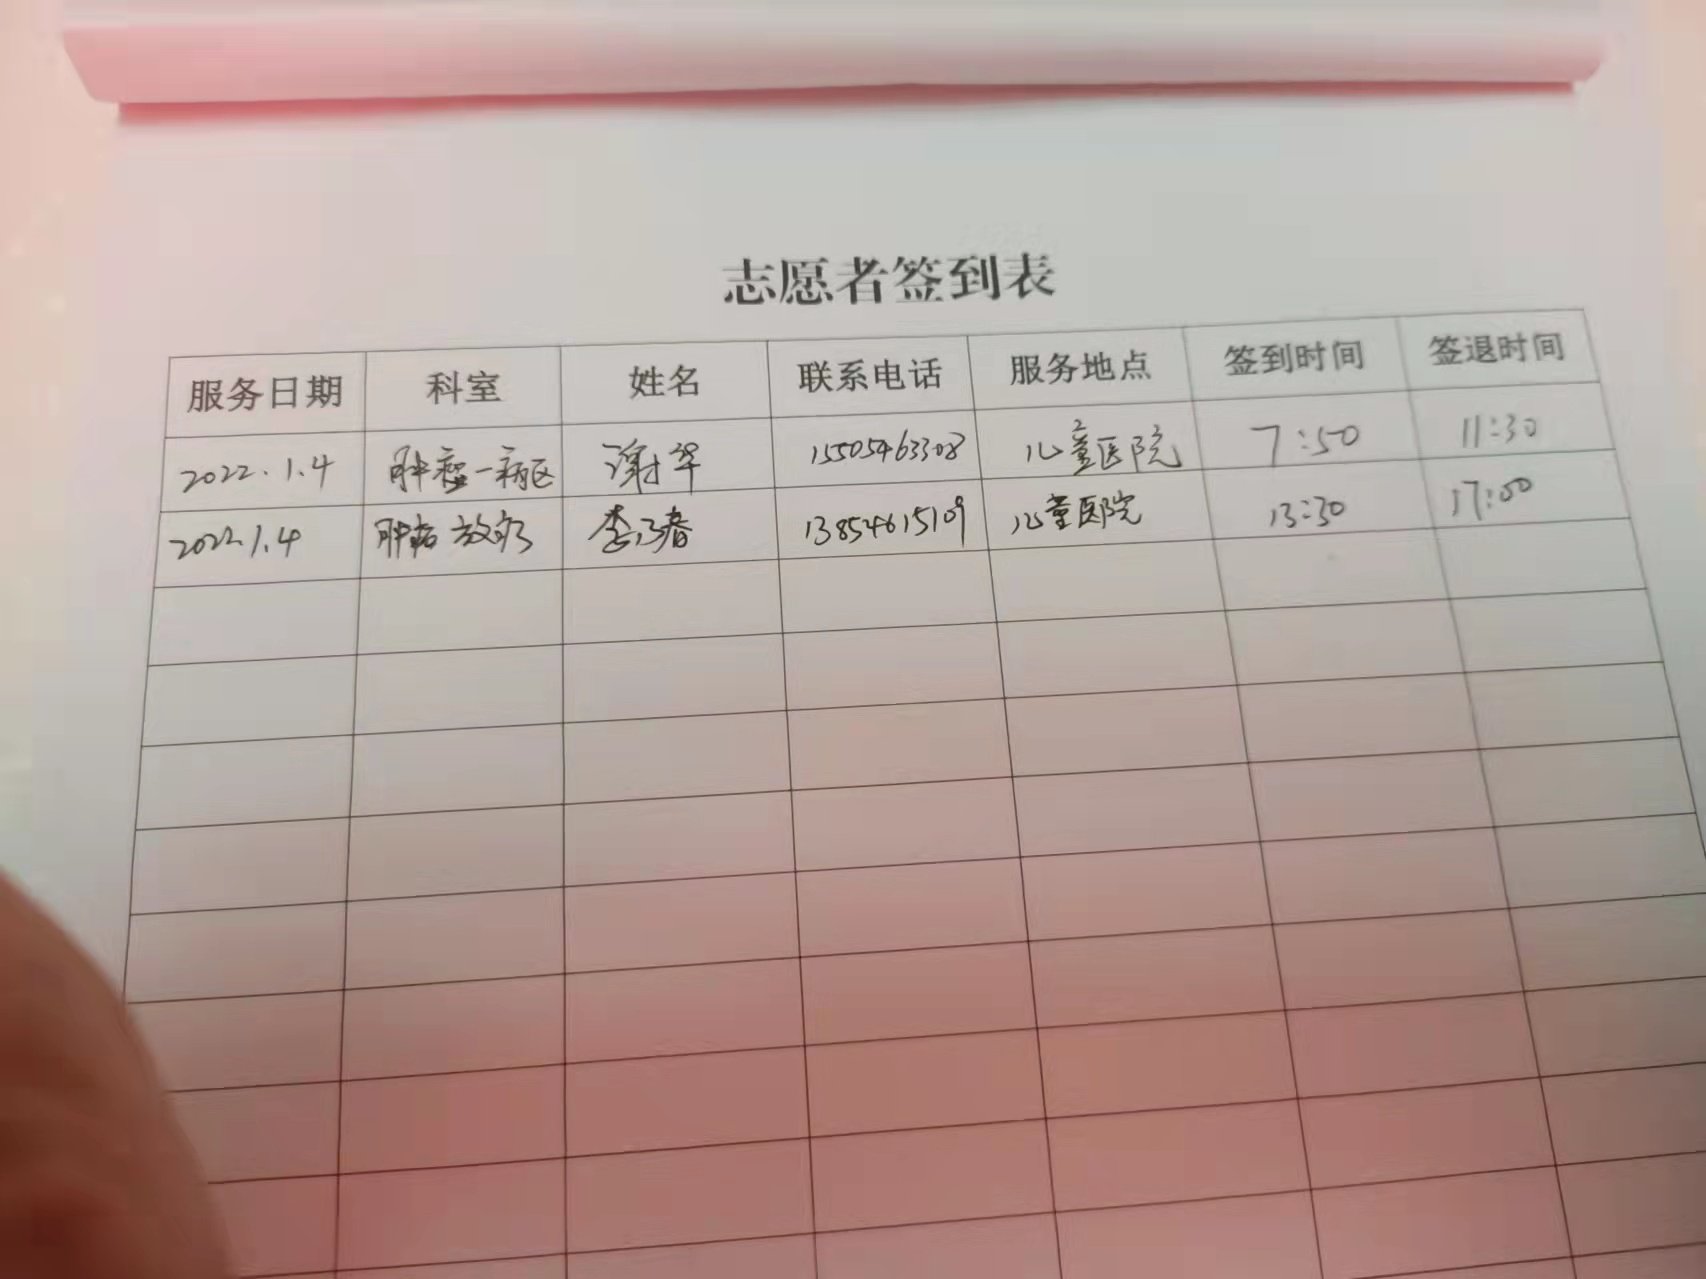 志愿者签到表
服务日期 科室 姓名 联系电话 服务地点 签到时间 签退时间
2022.1.4 肿瘤一病区 谢华 15505463308 儿童医院 7:50 11:30
2022.1.4 肿瘤放疗 李乃春 13854615109 儿童医院 13:30 17:00